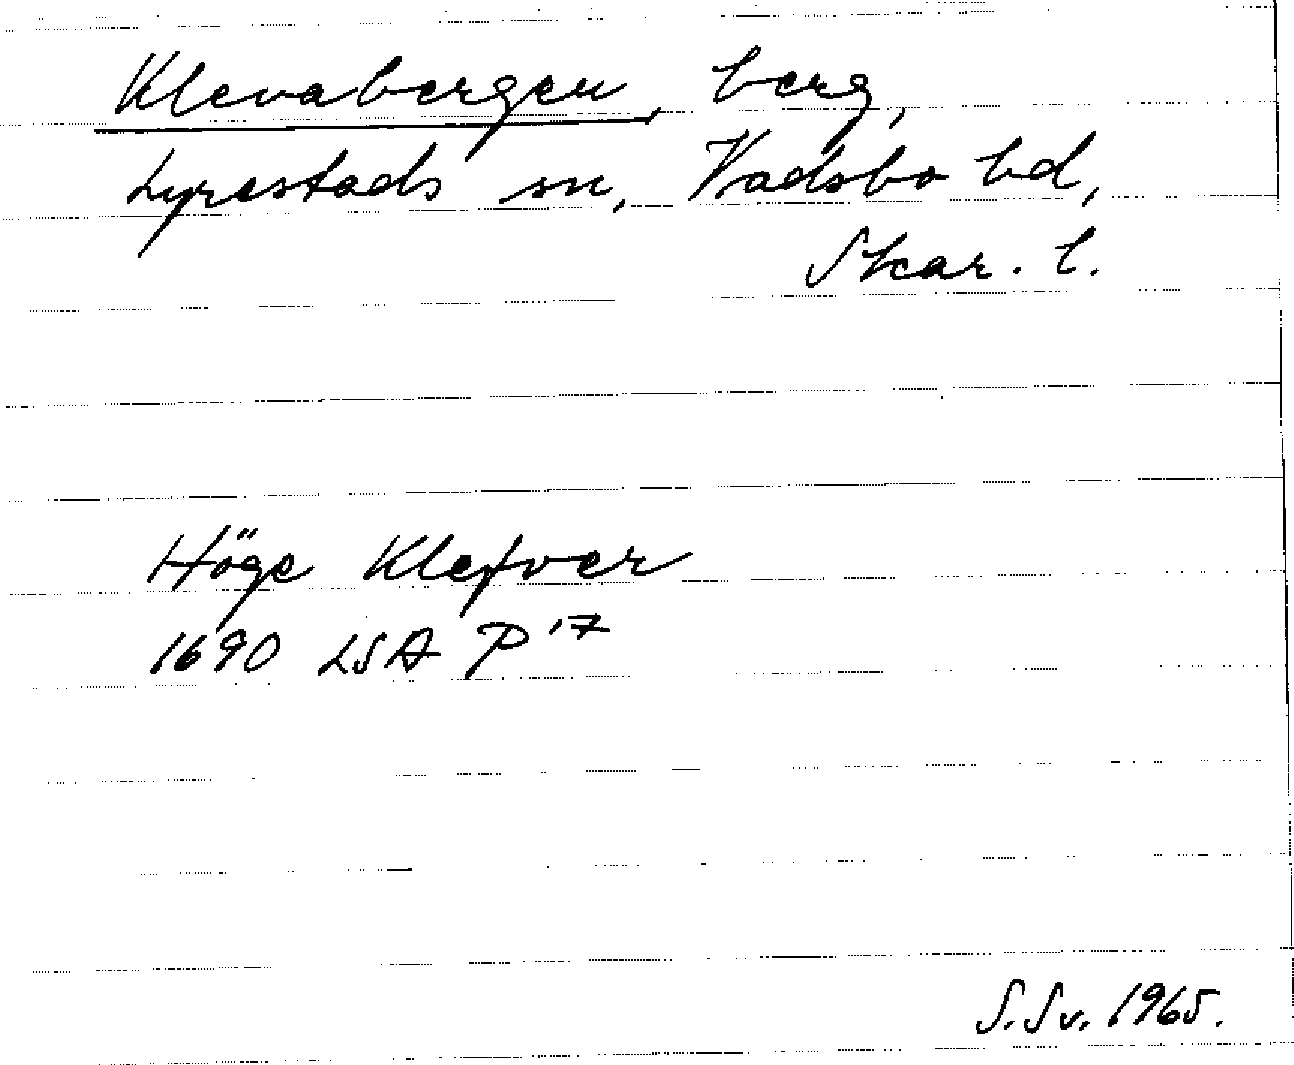 Klevabergen, berg,
Lyrestads sn, Vadsbo hd,
Skar. l.
Höge Klefver
1690 LSA P 17
S. Sv. 1965.